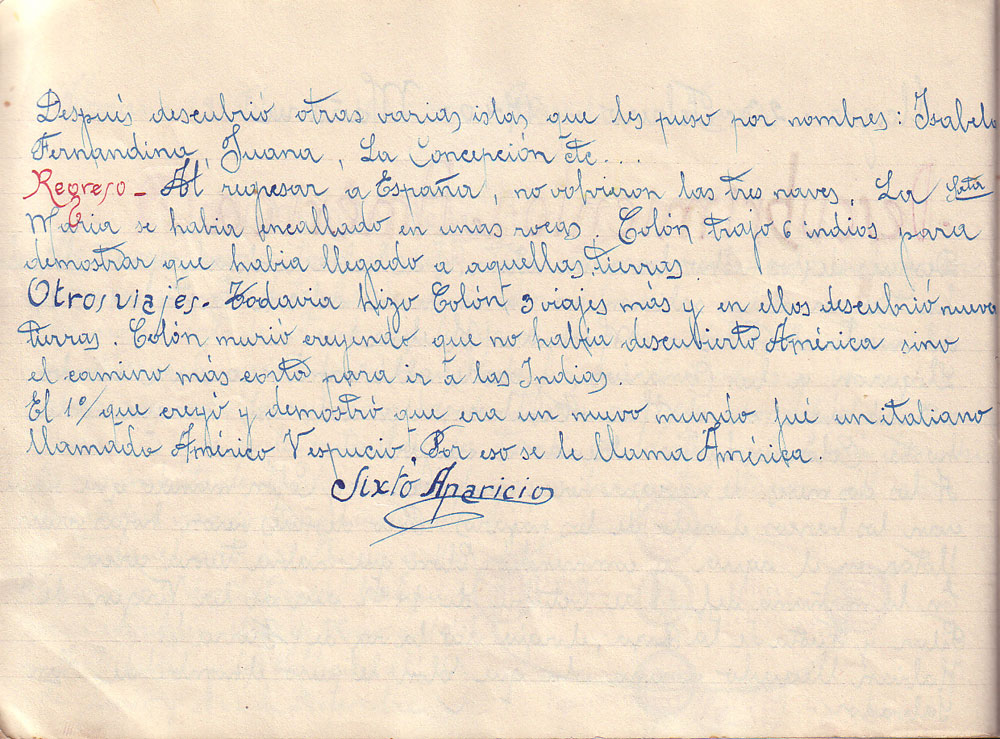 Después descubrió otras varias islas que les puso por nombres: Isabela
Fernandina, Juana, La Concepción etc....
Regreso - Al regresar a España, no volvieron las tres naves. La Sta
Maria se habia encallado en unas rocas. Colón trajo 6 indios para
demostrar que habia llegado a aquellas tierras
Otros viajes. - Todavia hizo Colón 3 viajes más y en ellos descubrió nuevas
tierras. Colón murió creyendo que no había descubierto América sino
el camino más corto para ir a las Indias.
El 1º/ que creyó y demostró que era un nuevo mundo fué un italiano
llamado Américo Vespucio. Por eso se le llama América.
Sixto Aparicio